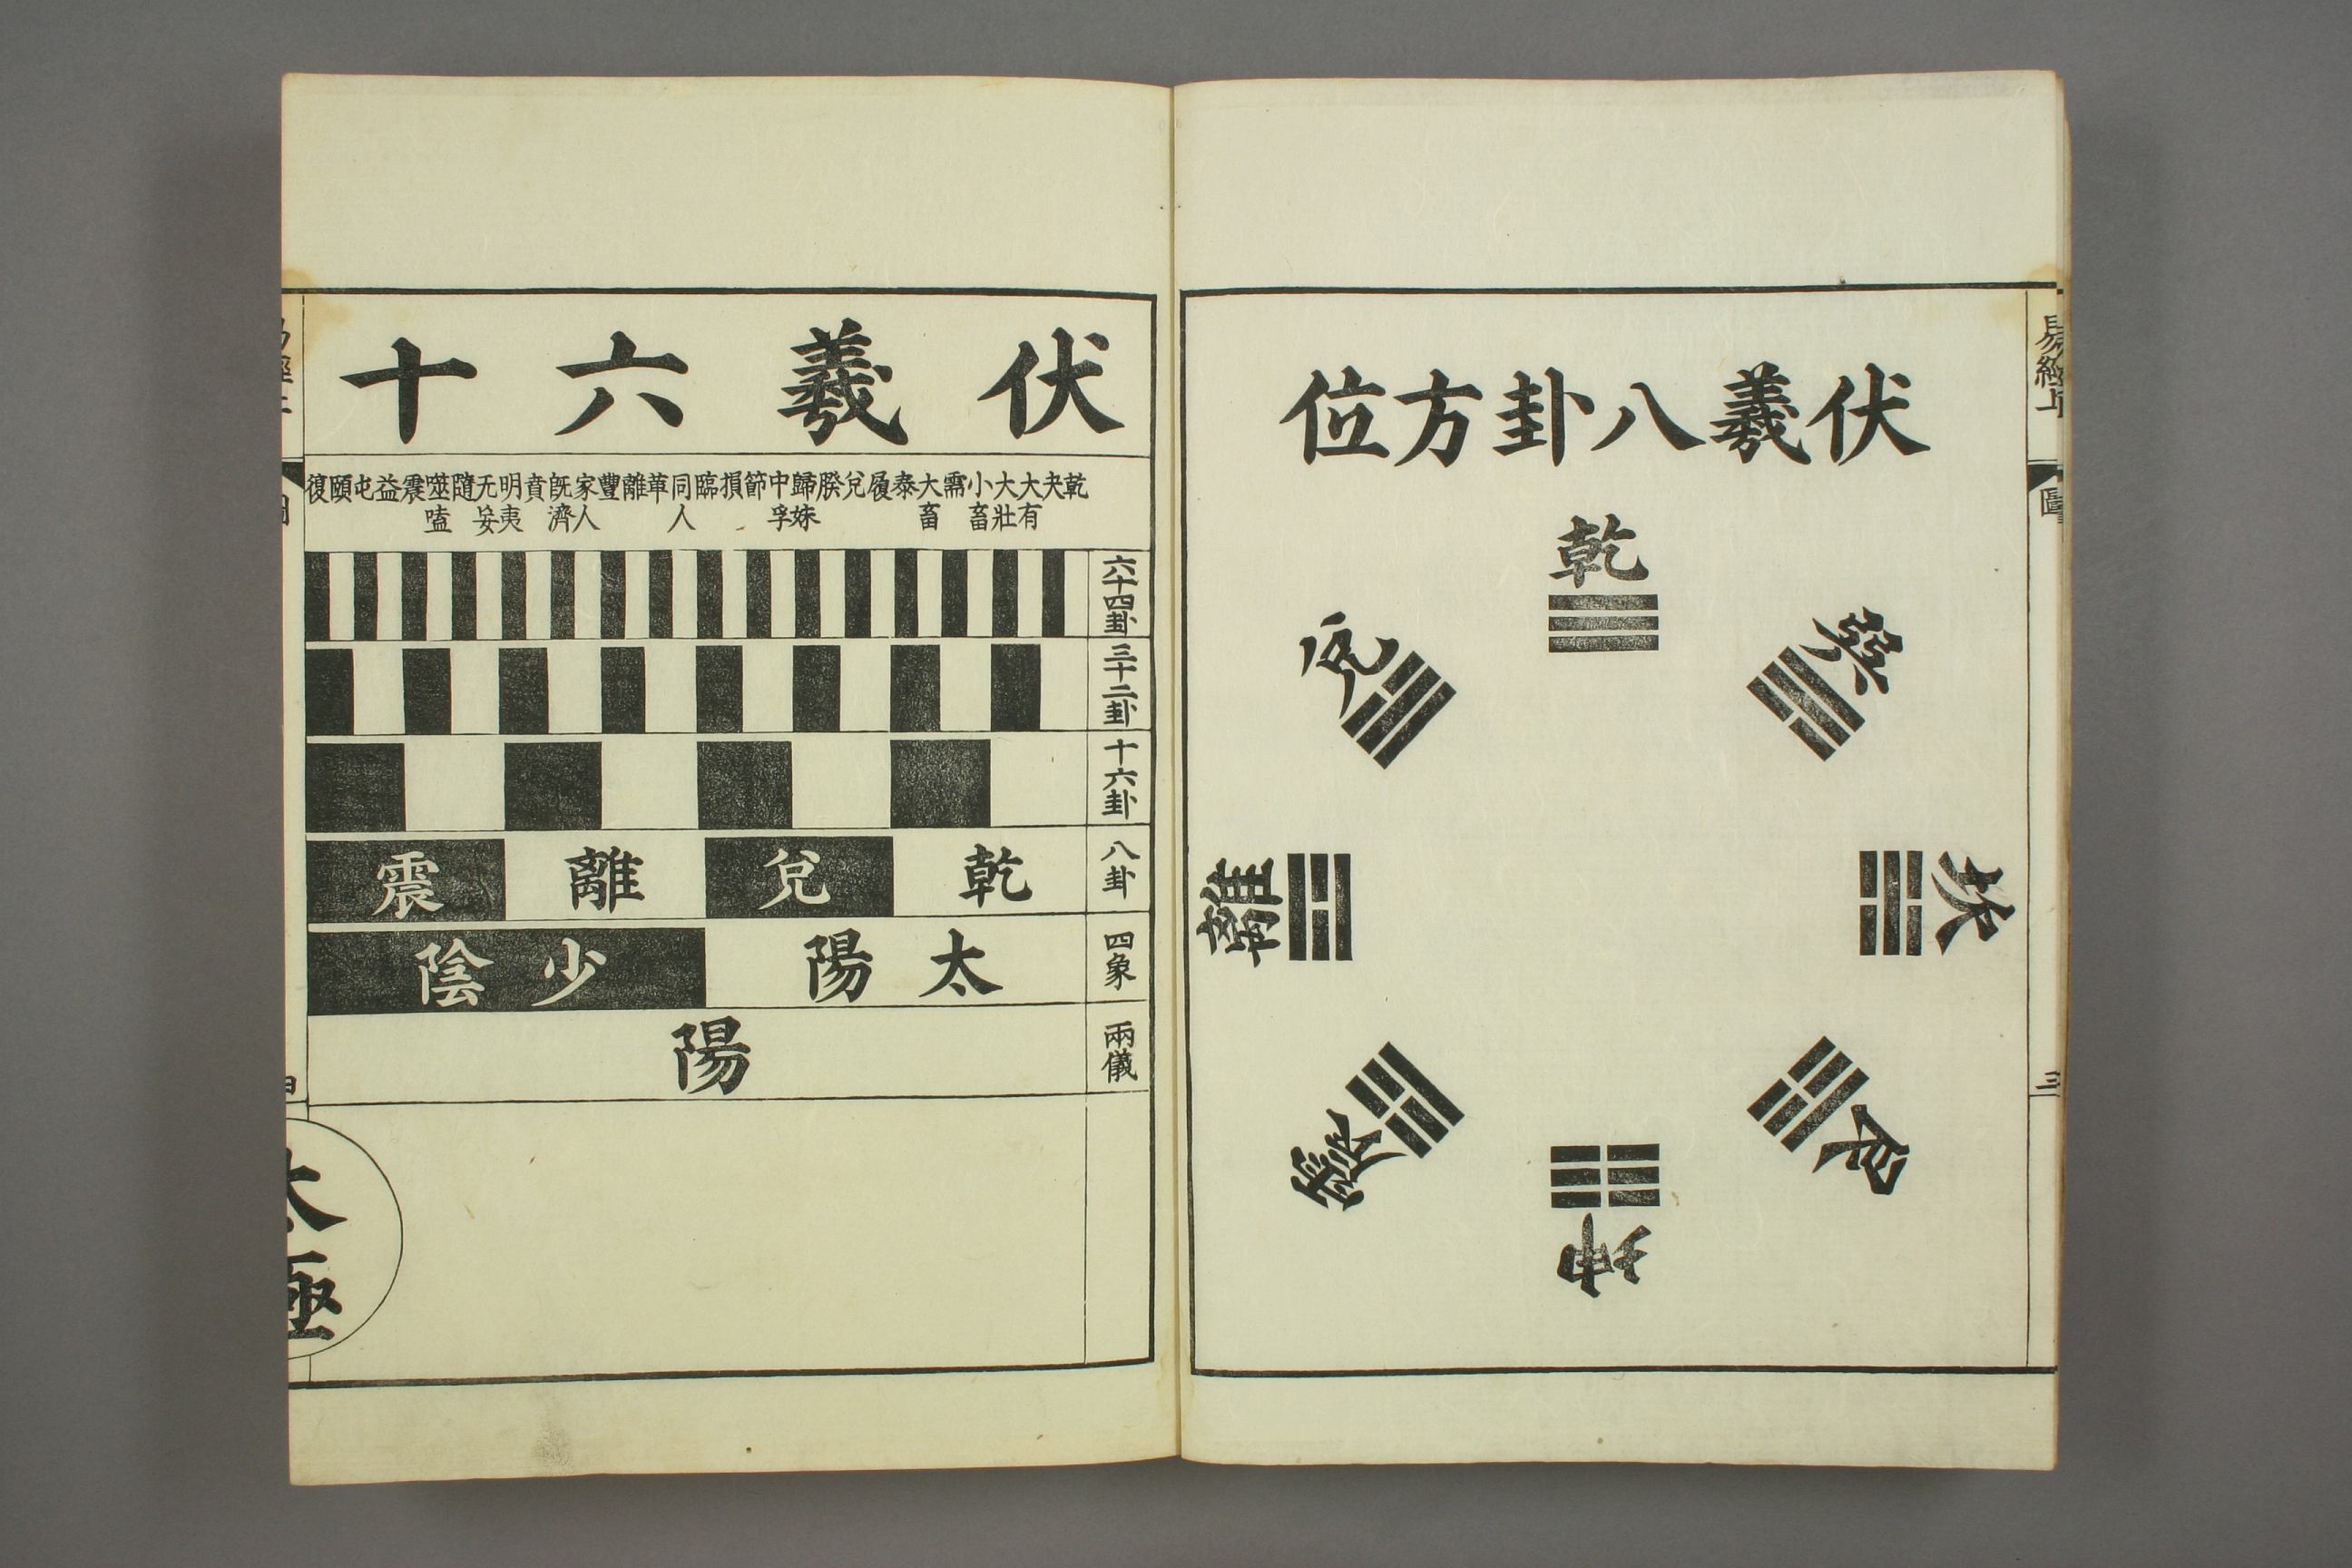 易經上
圖
三
伏羲八卦方位
乾
兌
巽
離
坎
震
艮
坤
伏羲六十
乾夬大有大壯小畜需大畜泰履兌睽歸妹中孚節損臨同人革離豐家人旣濟賁明夷无妄隨噬嗑震益屯頤復
六十四卦
三十二卦
十六卦
八卦
乾兌離震
四象
太陽少陰
兩儀
陽
太極